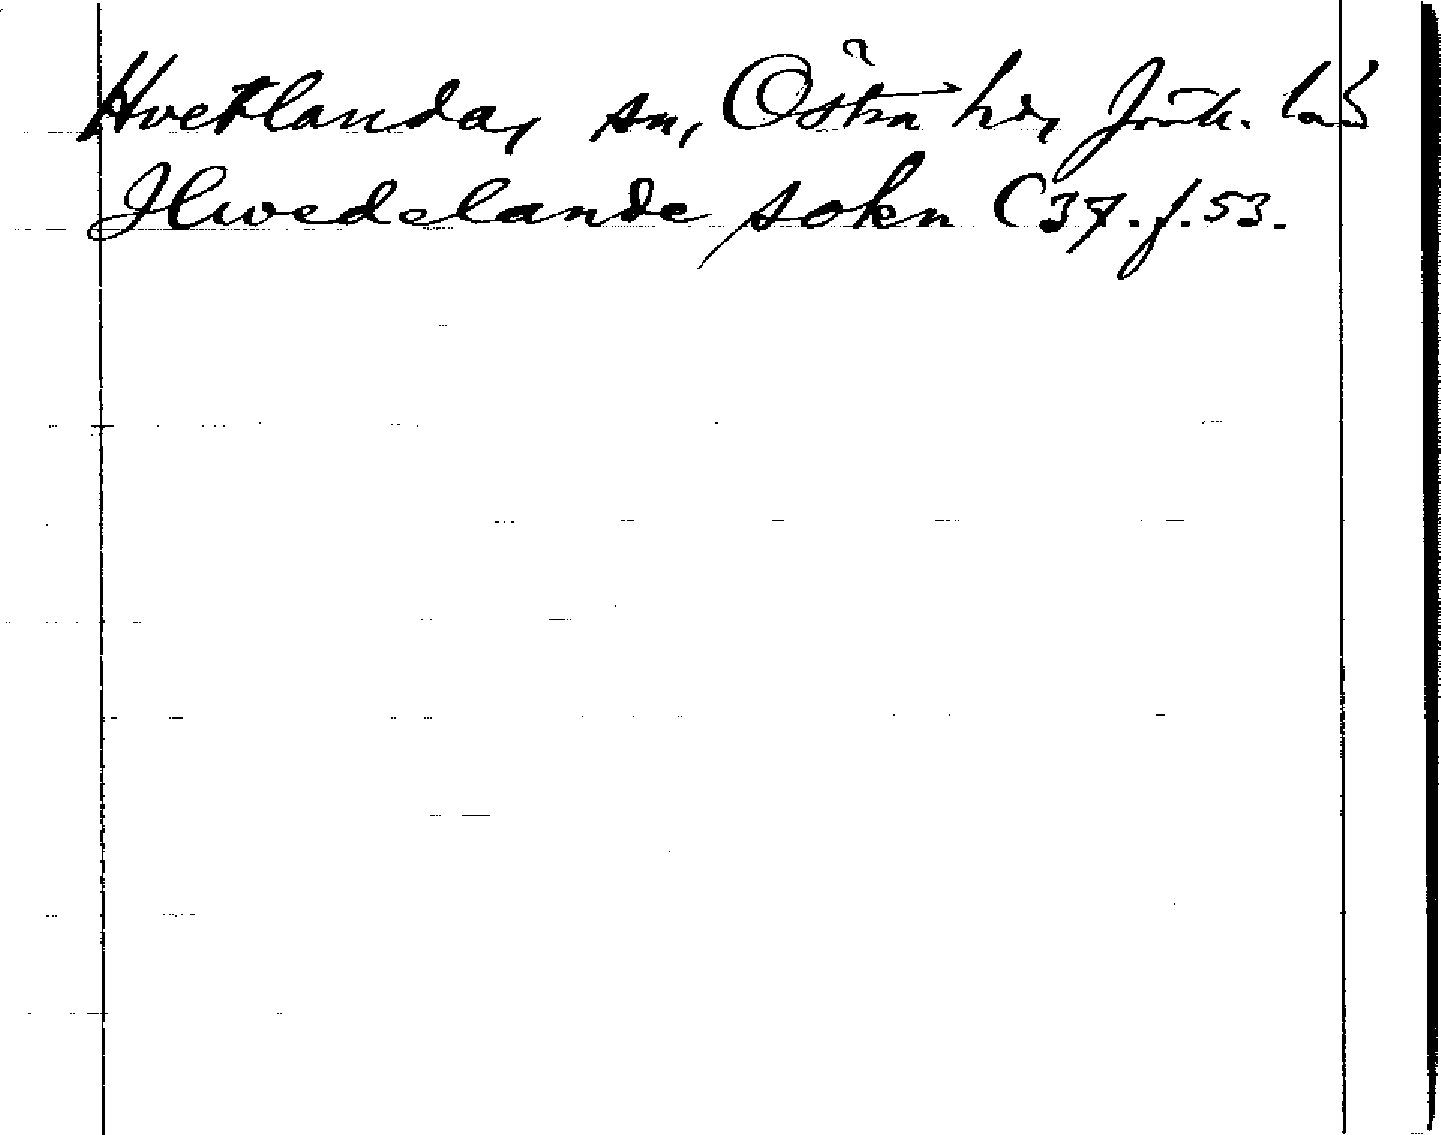 Hvetlanda, sn, Östra hd, Jönk. län
Hwedelande sokn C 37. f. 53.